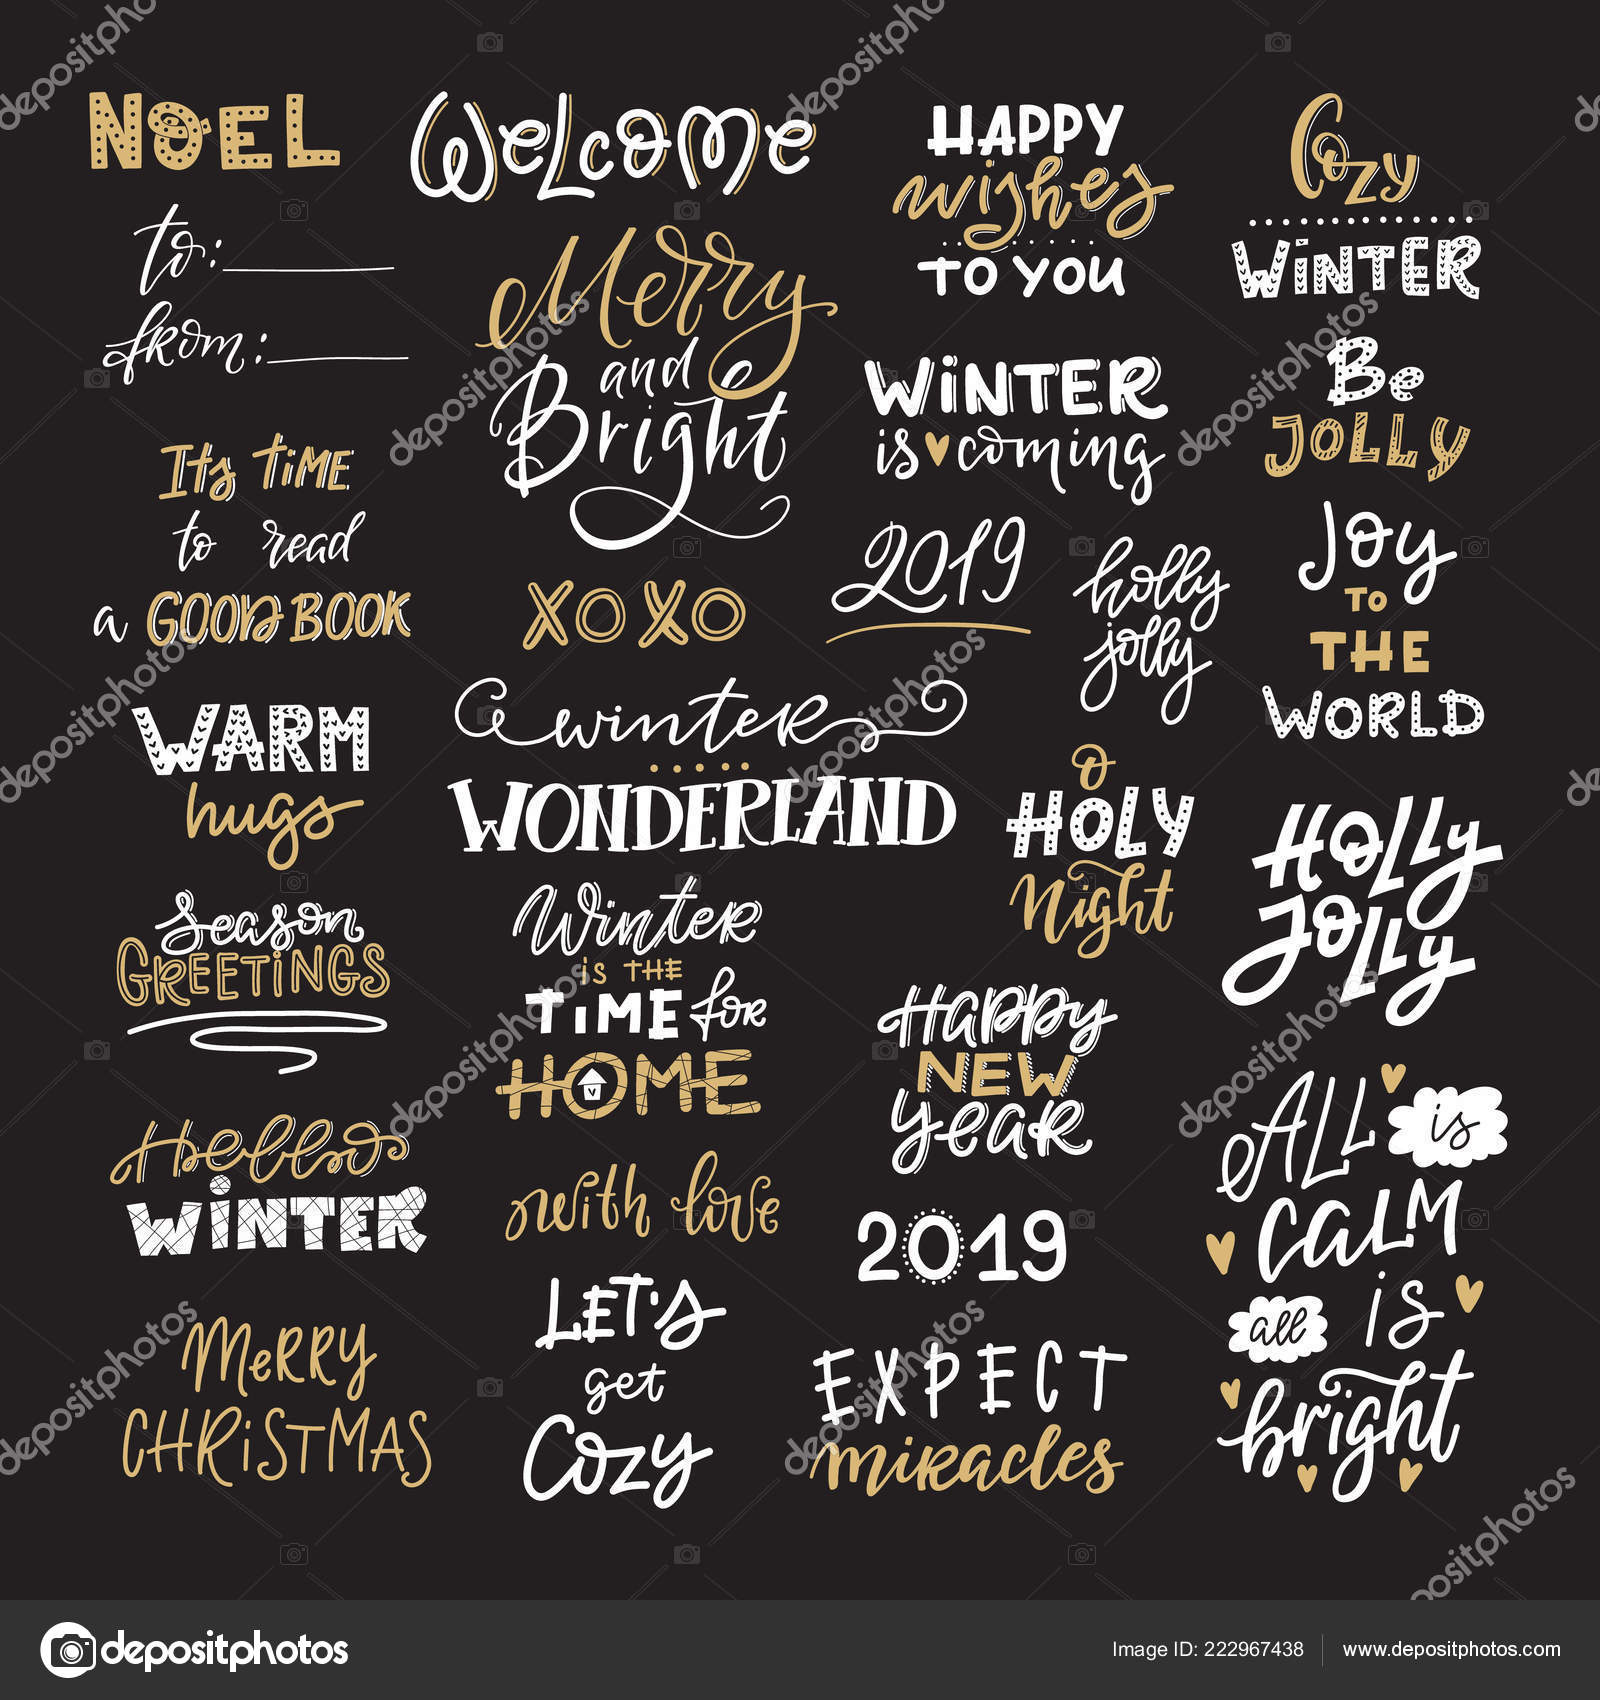 NOEL
to:
from:
Its TiME
to read
a GOOD BOOK
WARM
hugs
Season
GREETINGS
Hello
WiNTER
MeRRY
CHRiSTMAS
Welcome
Merry
and
Bright
XOXO
winter
WONDERLAND
Winter
is THE
TiME for
HOME
with love
LET'S
get
Cozy
HAPPY
wishes
TO YOU
WiNTER
is coming
2019
holly
jolly
O
HOLY
Night
Happy
NEW
year
2019
EXPECT
miracles
Cozy
WiNTER
Be
JOLLY
Joy
TO
THE
WORLD
Holly
Jolly
ALL is
CALM
all is
bright
depositphotos
Image ID: 222967438
www.depositphotos.com